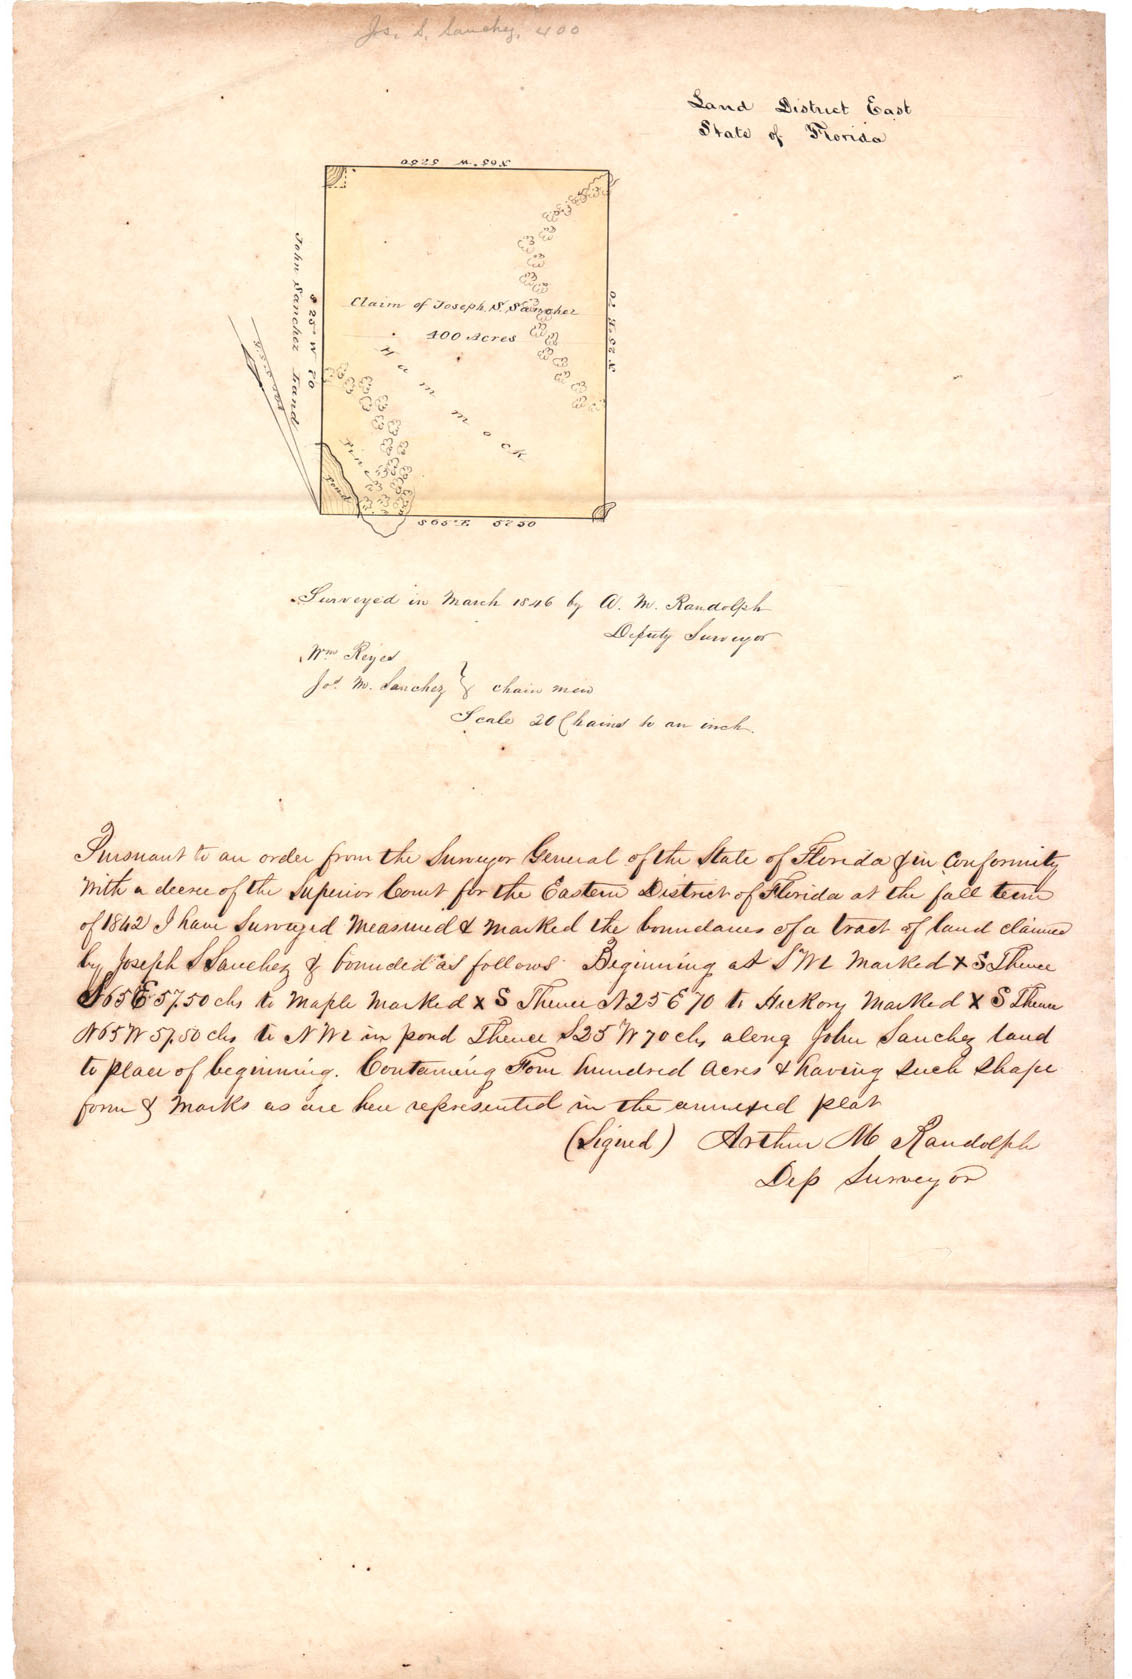 Jos. S. Sanchez. 400
Land District East
State of Florida
N65°W 5750
John Sanchez Land
S 25° W 70
N 25° E 70
Claim of Joseph. S. Sanchez
400 Acres
Hamock
Pine
Pond
S65°E 5750
Surveyed in March 1846 by A. M. Randolph
Deputy Surveyor
Wm Reyes
Jos. M. Sanchez } chain men
Scale 20 Chains to an inch.
Pursuant to an order from the Surveyor General of the State of Florida & in Conformity
With a decree of the Superior Court for the Eastern District of Florida at the fall term
of 1842 I have Surveyed Measured & Marked the boundaries of a tract of land claimed
by Joseph S Sanchez & bounded as follows Beginning at S Marked X S Thence
S65E 57.50 chs to Maple Marked X S Thence N25E 70 to Hickory Marked X S Thence
N65W 57.50 chs to N in pond Thence S25°W 70 chs along John Sanchez land
to place of beginning. Containing Four hundred Acres & having Such Shape
form & Marks as are here represented in the annexed plat
(Signed) Arthur M Randolph
Dep Surveyor